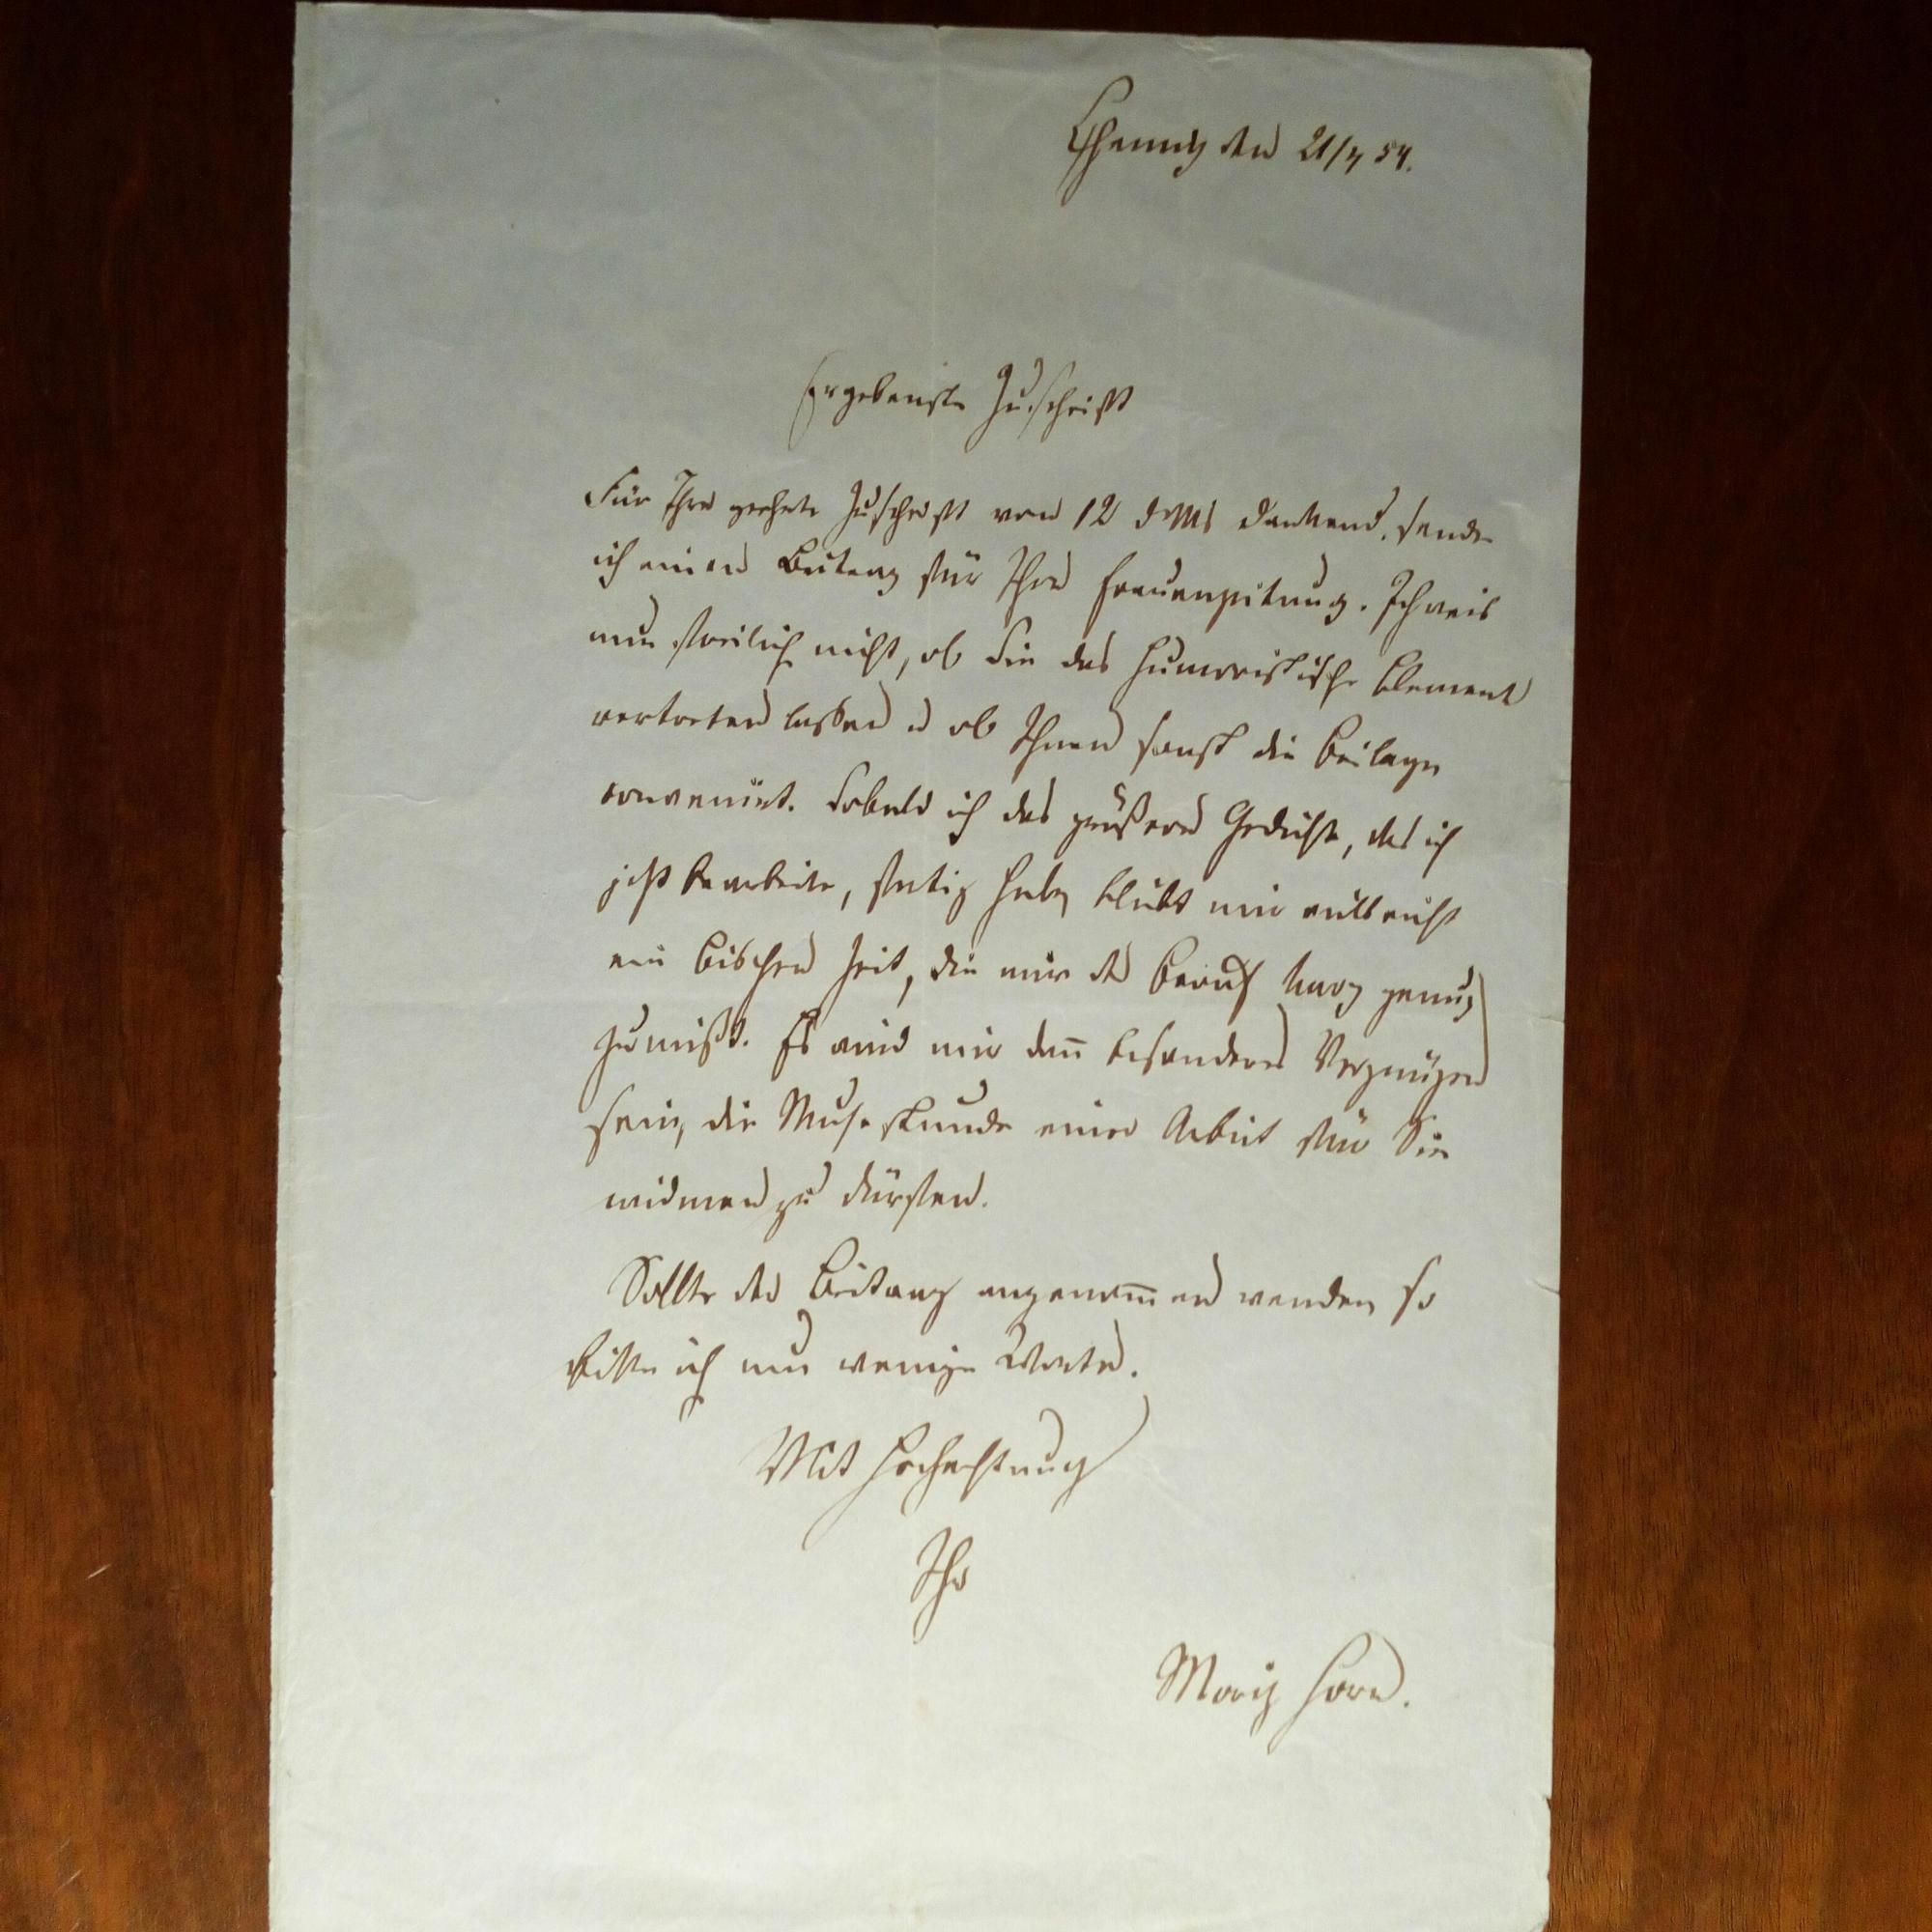 Chemnitz den 21/7 54.
Ergebenste Zuschrift
Für Ihre geehrte Zuschrift vom 12 d Mts dankend, sende
ich einen Beitrag für Ihre Frauenzeitung. Ich weis
nun freilich nicht, ob Sie das humoristische Element
vertreten lassen u ob Ihnen sonst die Beilage
convenirt. Sobald ich das größere Gedicht, das ich
jetzt bearbeite, fertig habe, bleibt mir vielleicht
ein Bischen Zeit, die mir der Beruf karg genug
zumißt. Es wird mir dann besonderes Vergnügen
sein, die Musestunde einer Arbeit für Sie
widmen zu dürfen.
Sollte der Beitrag angenommen werden, so
bitte ich um wenige Worte.
Mit Hochachtung
Ihr
Moritz Horn.